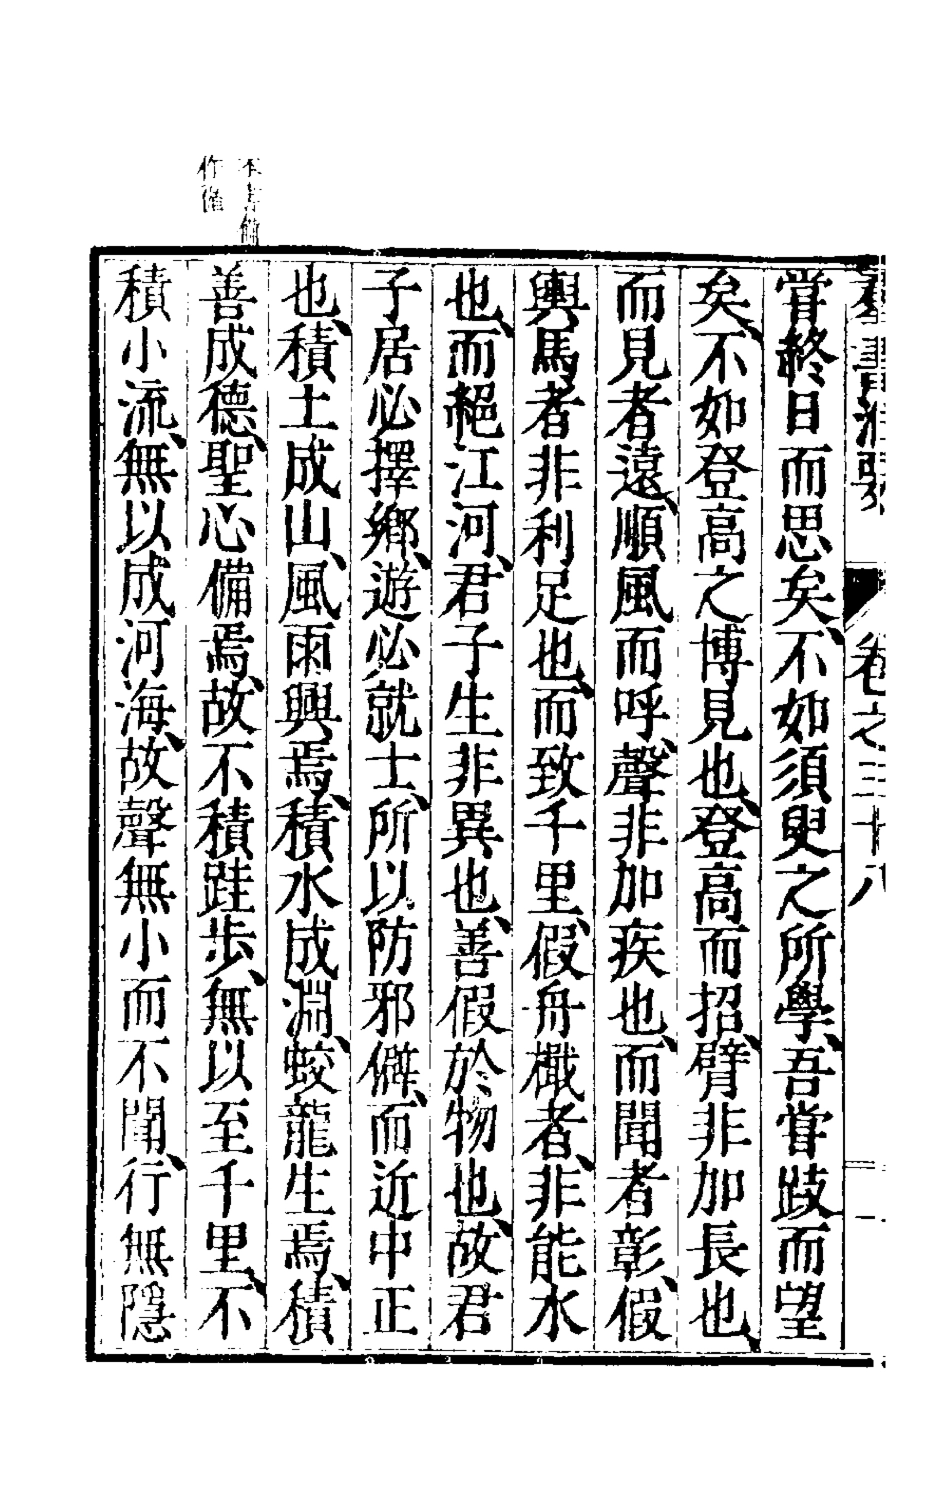 羣書治要 卷之三十八 一
嘗終日而思矣、不如須臾之所學、吾嘗跂而望
矣、不如登高之博見也、登高而招、臂非加長也、
而見者遠、順風而呼、聲非加疾也、而聞者彰、假
輿馬者非利足也、而致千里、假舟檝者、非能水
也、而絕江河、君子生非異也、善假於物也、故君
子居必擇鄉、遊必就士、所以防邪僻、而近中正
也、積土成山、風雨興焉、積水成淵、蛟龍生焉、積
善成德、聖心備焉、故不積跬步、無以至千里、不
積小流、無以成河海、故聲無小而不聞、行無隱
本書備
作循